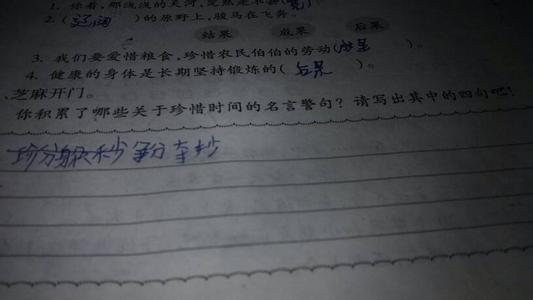 1. 你看,那浅浅的天河,定然是不甚(宽)
2. (辽阔)的原野上,骏马在飞奔。
结果 成果 后果
3. 我们要爱惜粮食,珍惜农民伯伯的劳动( )。
4. 健康的身体是长期坚持锻炼的(后果)。
芝麻开门。
你积累了哪些关于珍惜时间的名言警句?请写出其中的四句吧!
珍分躲秒 争分夺秒